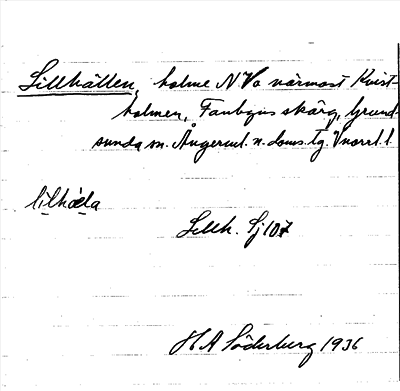 Lillhällen, holme NVo närmast Kvist-
holmen, Fanbyns skärg, Grund-
sunda sn. Ångerml. n. doms. tg. Vnorrl. l.
lìlhæ̀la
Lillh. Sj 107
H A Söderberg 1936